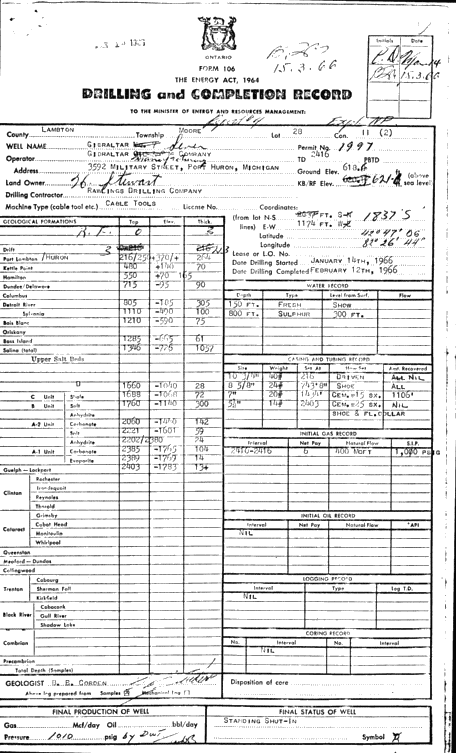 ONTARIO
FORM 106
THE ENERGY ACT, 1964
DRILLING and COMPLETION RECORD
TO THE MINISTER OF ENERGY AND RESOURCES MANAGEMENT:
Initials Date
15.3.66
15.3.66
County LAMBTON Township MOORE Lot 28 Con. 11 (2)
WELL NAME GIBRALTAR Permit No. 1997
Operator GIBRALTAR COMPANY TD 2416 PBTD
Address 3592 MILITARY STREET, PORT HURON, MICHIGAN Ground Elev. 618.6
Land Owner H. Stewart KB/RF Elev. 621 (above sea level)
Drilling Contractor RAWLINGS DRILLING COMPANY
Machine Type (cable tool etc.) CABLE TOOLS License No.
Coordinates:
(from lot N-S 1837 S
lines) E-W 1174 FT.
Latitude 42° 47' 06
Longitude 82° 26' 44"
Lease or I.O. No.
Date Drilling Started JANUARY 14TH, 1966
Date Drilling Completed FEBRUARY 12TH, 1966
GEOLOGICAL FORMATIONS Top Elev. Thick.
R.F. 0 3
Drift 3 213
Port Lambton /HURON 264
Kettle Point 480 +140 70
Hamilton 550 +70 165
Dundee/Delaware 715 -95 90
Columbus
Detroit River 805 -185 305
Sylvania 1110 -490 100
Bois Blanc 1210 -590 75
Oriskany
Bass Island 1285 -665 61
Salina (total) 1346 -726 1057
Upper Salt Beds
D 1660 -1040 28
C Unit Shale 1688 -1068 72
B Unit Salt 1760 -1140 300
Anhydrite
A-2 Unit Carbonate 2060 -1440 142
Salt 2221 -1601 59
Anhydrite 2202/2380 24
A-1 Unit Carbonate 2385 -1765 104
Evaporite 2389 -1769 14
Guelph - Lockport 2403 -1783 13+
Clinton
Rochester
Irondequoit
Reynales
Thorold
Grimsby
Cataract
Cabot Head
Manitoulin
Whirlpool
Queenston
Meaford - Dundas
Collingwood
Trenton
Cobourg
Sherman Fall
Kirkfield
Black River
Coboconk
Gull River
Shadow Lake
Cambrian
Precambrian
Total Depth (Samples)
GEOLOGIST
Above log prepared from Samples Mechanical Log
WATER RECORD
Depth Type Level from Surf. Flow
150 FT. FRESH SHOW
800 FT. SULPHUR 300 FT.
CASING AND TUBING RECORD
Size Weight Set At How Set Amt. Recovered
10 3/4" 40# 216 DRIVEN NIL
8 5/8" 24# 743'8" SHOE ALL
7" 20# 1434' CEM. 15 SX. 1106'
5½" 14# 2403 CEM. 25 SX. NIL
SHOE & FL. COLLAR
INITIAL GAS RECORD
Interval Net Pay Natural Flow S.I.P.
2410-2416 6 400 MCFT 1,010 PSIG
INITIAL OIL RECORD
Interval Net Pay Natural Flow °API
NIL
LOGGING RECORD
Interval Type Log T.D.
NIL
CORING RECORD
No. Interval No. Interval
NIL
Disposition of core
FINAL PRODUCTION OF WELL
Gas Mcf/day Oil bbl/day
Pressure 1010 psig by DWT
FINAL STATUS OF WELL
STANDING SHUT-IN
Symbol